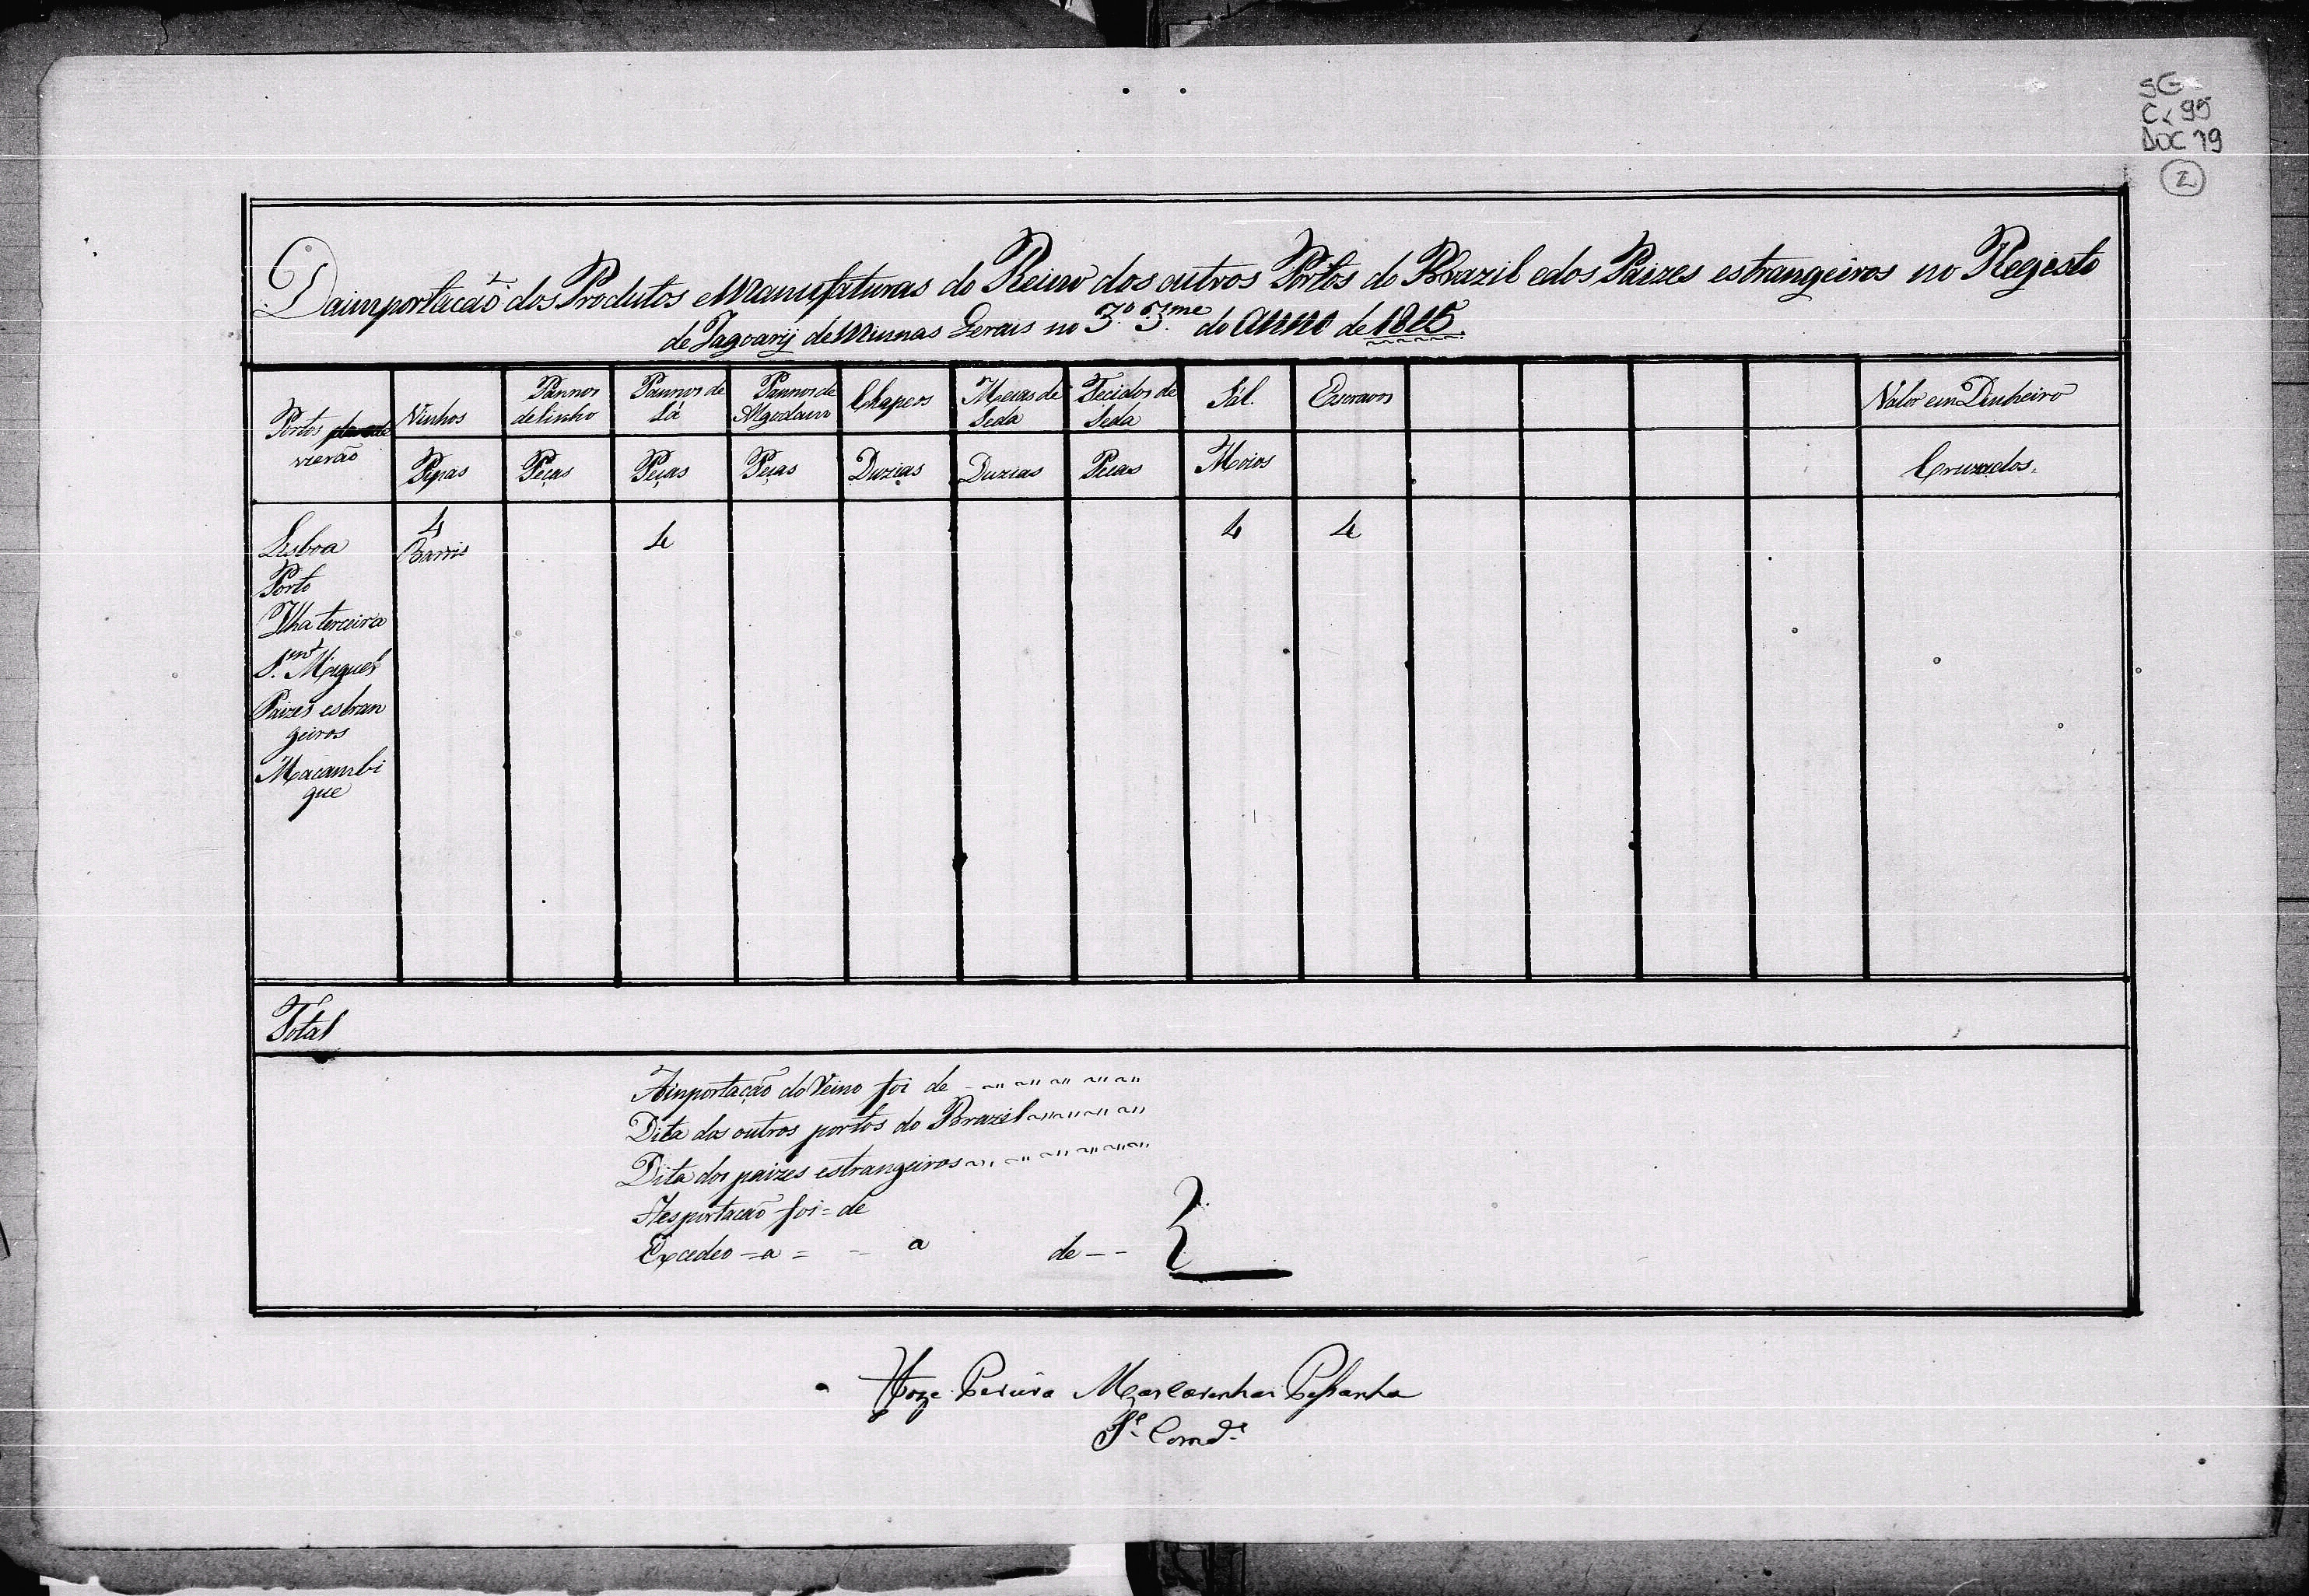 SG
Cx 95
DOC 19
2
Da importação dos Produtos e Manufaturas do Reino dos outros Portos do Brazil e dos Paizes estrangeiros no Regesto
de Jagoarij de Minnas Gerais no 3º 3.me do anno de 1815.
Portos donde vierão	Vinhos	Pannos de linho	Pannos de Lã	Pannos de Algodam	Chapeos	Meias de Seda	Tecidos de Seda	Sál.	Escravos	Valor em Dinheiro
Pipas	Peças	Peças	Peças	Duzias	Duzias	Pecas	Moios	Cruzados
Lisboa	4 Barris	4	4	4
Porto
Ilha terceira
S. Miguel
Paizes estran
geiros
Macambi
que
Total
A importação do Reino foi de
Dita dos outros portos do Brazil
Dita dos paizes estrangeiros
A esportacão foi = de
Excedeo = a = - a de - -
Joze Pereira Mascarenhas Peçanha
Comd.e